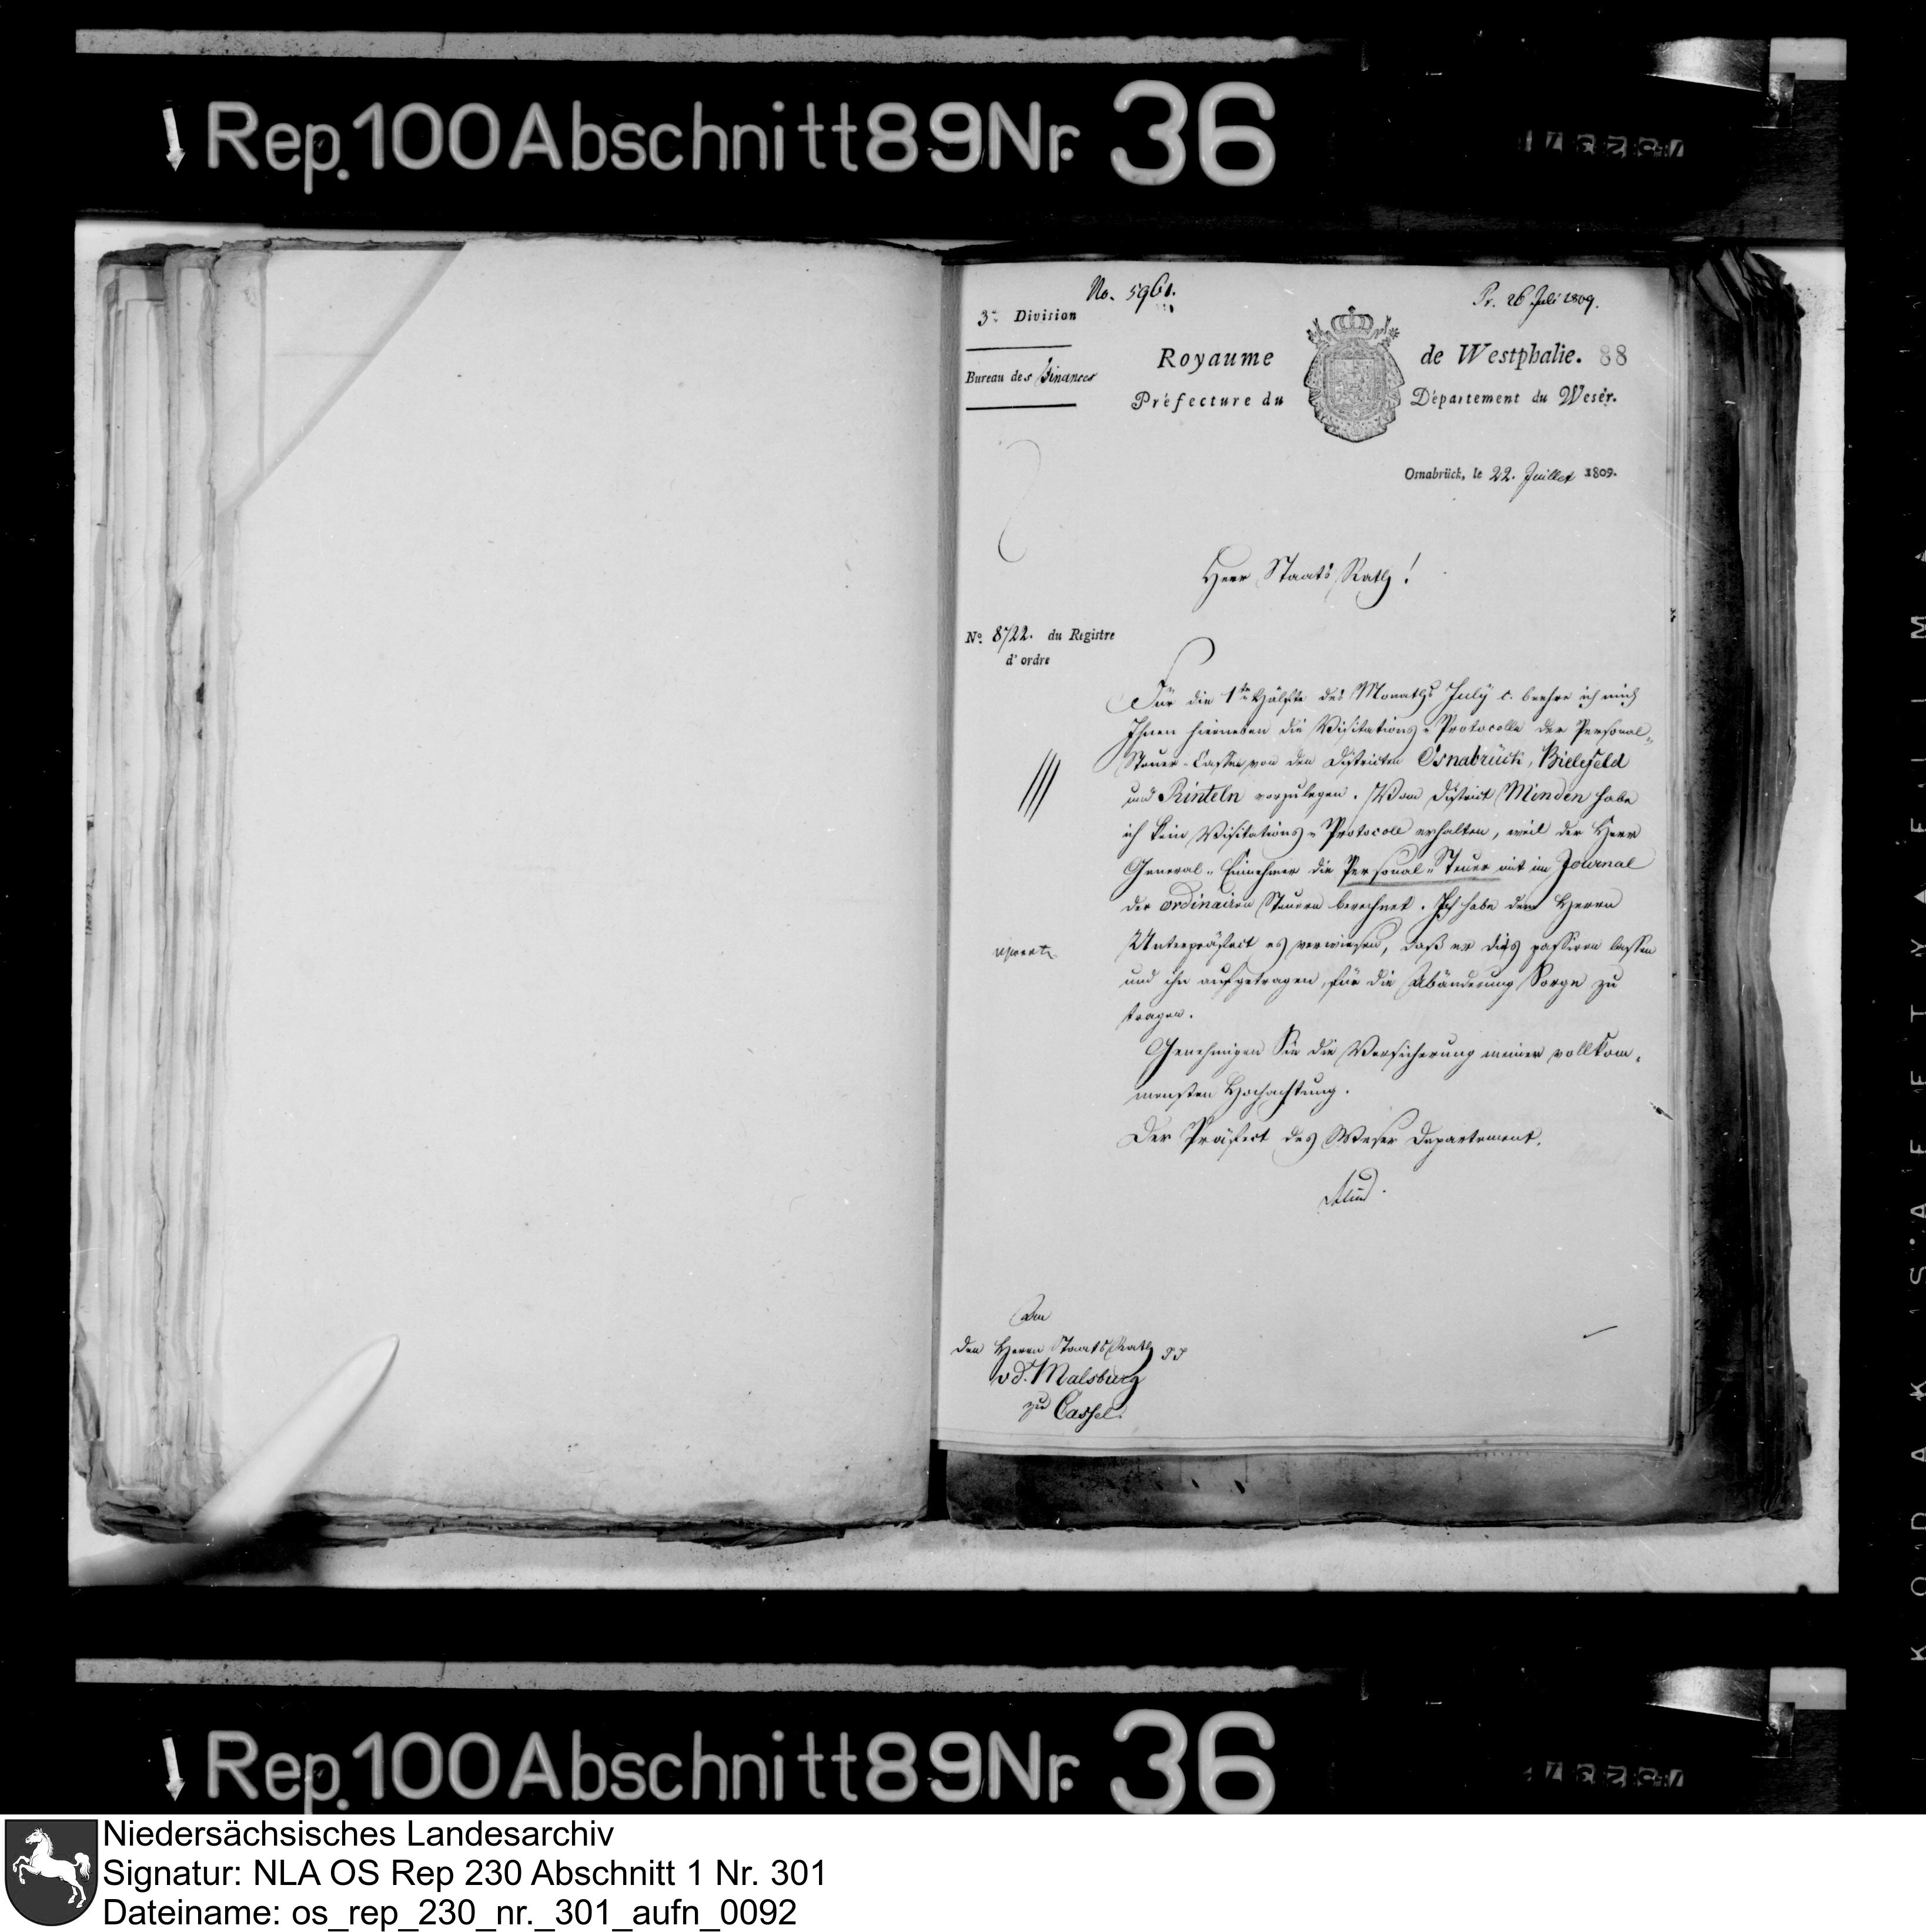 Rep.100Abschnitt89Nr. 36
No. 5961.
Pr. 26 Juli 1809.
3e Division
Bureau des Finances
Royaume de Westphalie. 88
Préfecture du Département du Weser.
Osnabrück, le 22. Juillet 1809.
Herr Staats Rath!
No. 8722. du Registre
d'ordre
Für die 1te Hälfte des Monaths July c. beehre ich mich
Ihnen hierneben die Visitations-Protocolle der Personal-
Steuer-Cassen von den Districten Osnabrück, Bielefeld
und Rinteln vorzulegen. Vom District Minden habe
ich kein Visitations-Protocoll erhalten, weil der Herr
General-Einnehmer die Personal-Steuer mit im Journal
der ordinairen Steuern berechnet. Ich habe dem Herrn
Unterpräfect es verwiesen, daß er dies passiren lassen
und ihn aufgetragen, für die Abänderung Sorge zu
tragen.
Genehmigen Sie die Versicherung meiner vollkom-
mensten Hochachtung.
Der Präfect des Weser Departement.
An
den Herrn Staats Rath
v. d. Malsburg
zu Cassel.
KODAK SAFETY FILM
Rep.100Abschnitt89Nr. 36
Niedersächsisches Landesarchiv
Signatur: NLA OS Rep 230 Abschnitt 1 Nr. 301
Dateiname: os_rep_230_nr._301_aufn_0092